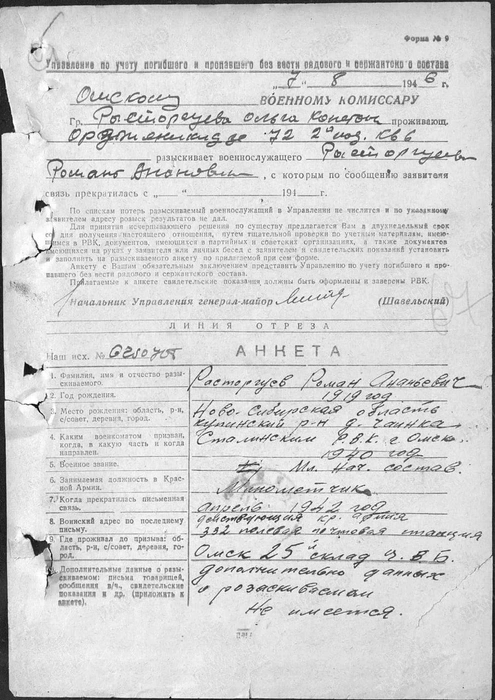 Форма № 9
Управление по учету погибшего и пропавшего без вести рядового и сержантского состава
„7“ 8 1946 г.
Омскому ВОЕННОМУ КОМИССАРУ
Гр. Расторгуева Ольга проживающ.
Орджоникидзе 72 кв 6
разыскивает военнослужащего Расторгуева
Романа, с которым по сообщению заявителя
связь прекратилась с „ “ 194 г.
По спискам потерь разыскиваемый военнослужащий в Управлении не числится и по указанному
заявителем адресу розыск результатов не дал.
Для принятия исчерпывающего решения по существу предлагается Вам в двухнедельный срок
со дня получения настоящего отношения, путем тщательной проверки по учетным материалам, имею-
щимся в РВК, документов, имеющихся в партийных и советских организациях, а также документов
имеющихся на руках у заявителя или данных бесед с заявителем и свидетельских показаний установить
и заполнить на разыскиваемого анкету по прилагаемой при сем форме.
Анкету с Вашим обязательным заключением представить Управлению по учету погибшего и про-
павшего без вести рядового и сержантского состава.
Прилагаемые к анкете свидетельские показания должны быть оформлены и заверены РВК.
Начальник Управления генерал-майор (Шавельский)
ЛИНИЯ ОТРЕЗА
Наш исх. №
АНКЕТА
1. Фамилия, имя и отчество разы-
скиваемого. Расторгуев Роман Ананьевич
2. Год рождения. 1919 год
3. Место рождения: область, р-н, Ново-Сибирская область
с/совет, деревня, город. купинский р-н д. Чаинка
4. Каким военкоматом призван, Сталинским РВК. г. Омск.
когда, в какую часть и когда
направлен. 1940 год
5. Военное звание. Мл. Нач. состав.
6. Занимаемая должность в Крас-
ной Армии. Минометчик
7. Когда прекратилась письменная
связь. апрель 1942 год
8. Воинский адрес по последнему действующая кр. армия
письму. 332 полевая почтовая станция
9. Где проживал до призыва: об-
ласть, р-н, с/совет, деревня, го-
род. Омск 25й склад З.В.Б.
Дополнительные данные о ра-
зыскиваемом: письма товарищей,
сообщения в/ч., свидетельские
показания и др. (приложить к
анкете). дополнительно данных
о розыскиваемом
Не имеется.